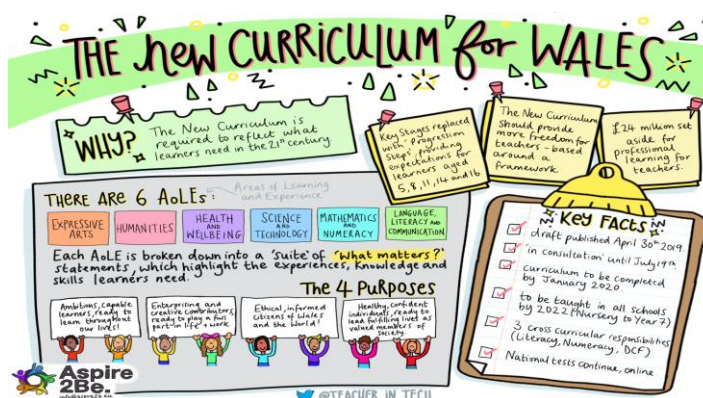 THE new CURRICULUM for WALES
WHY?
The New Curriculum is
required to reflect what
learners need in the 21st century
Key Stages replaced
with 'Progression
Steps', providing
expectations for
learners aged
5, 8, 11, 14 and 16
The New Curriculum
Should provide
more freedom for
teachers - based
around a
framework.
£24 million set
aside for
professional
learning for
teachers.
THERE ARE 6 AoLEs:
Areas of Learning
and Experience
EXPRESSIVE
ARTS
HUMANITIES
HEALTH
AND
WELLBEING
SCIENCE
AND
TECHNOLOGY
MATHEMATICS
AND
NUMERACY
LANGUAGE,
LITERACY AND
COMMUNICATION
Each AoLE is broken down into a 'suite' of 'What matters?'
statements, which highlight the experiences, knowledge and
skills learners need.
The 4 PURPOSES
Ambitious, capable
learners, ready to
learn throughout
our lives!
Enterprising and
creative contributors,
ready to play a full
part in life + work
Ethical, informed
Citizens of Wales
and the World!
Healthy, confident
individuals, ready to
lead fulfilling lives as
valued members of
Society.
KEY FACTS
draft published April 30th 2019.
'in consultation' until July 19th
curriculum to be completed
by January 2020
to be taught in all schools
by 2022 (Nursery to Year 7)
3 cross curricular responsibilities
(Literacy, Numeracy, DCF)
National tests continue, online
Aspire
2Be.
@TEACHER_IN_TECH